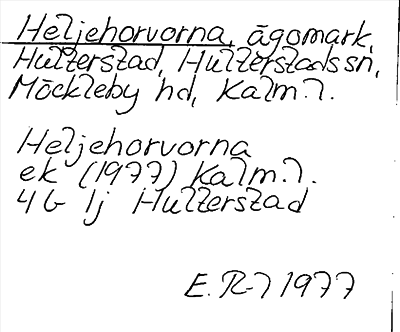 Heljehorvorna, ägomark,
Hulterstad, Hulterstads sn,
Möckleby hd, Kalm.l.
Heljehorvorna
ek (1977) Kalm.l.
4G 1j Hulterstad
E. R-7 1977